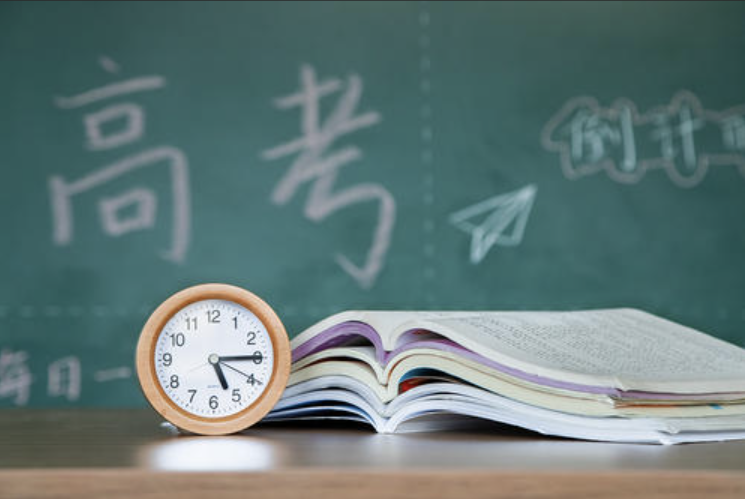 高考
倒计
每日一
12
1
2
3
4
5
6
7
8
9
10
11